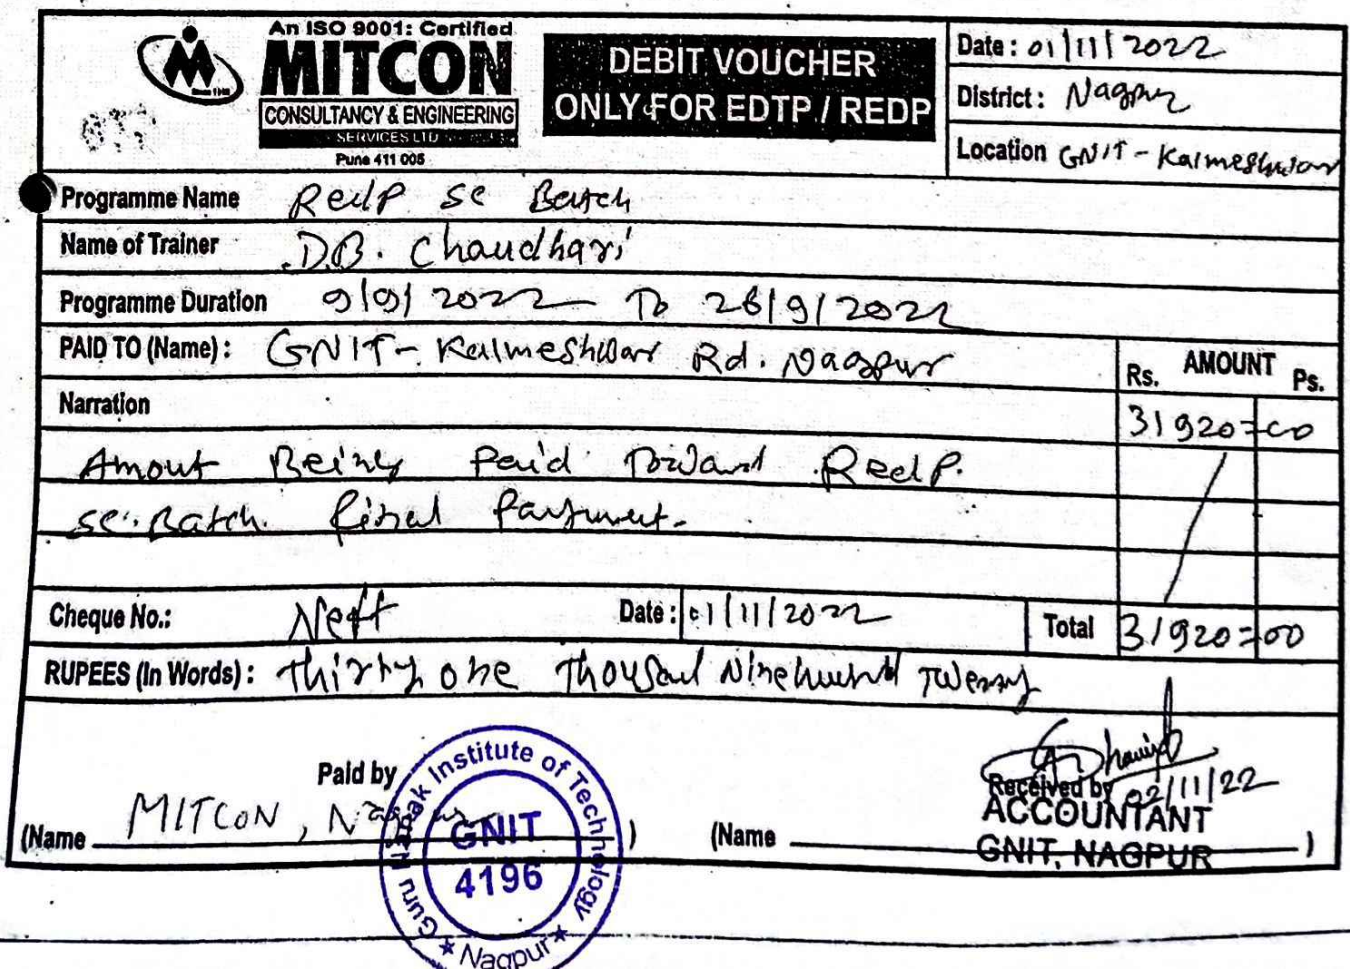 An ISO 9001: Certified
MITCON
CONSULTANCY & ENGINEERING
SERVICES LTD
Pune 411 005
DEBIT VOUCHER
ONLY FOR EDTP / REDP
Date : 01/11/2022
District : Nagpur
Location GNIT - Kalmeshwar
Programme Name Redp sc Batch
Name of Trainer D.B. Chaudhari
Programme Duration 9/9/2022 To 26/9/2022
PAID TO (Name) : GNIT - Kalmeshwar Rd. Nagpur
AMOUNT
Rs. Ps.
Narration 31920=00
Amout Being Paid Toward RedP.
sc. Batch final Payment.
Cheque No.: Neft Date : 01/11/2022 Total 31920=00
RUPEES (In Words) : thirty one thousand Ninehundred Twenty
Paid by
(Name MITCON, Nagpur )
Guru Nanak Institute of Technology
GNIT
4196
★ Nagpur ★
Received by 02/11/22
ACCOUNTANT
(Name GNIT, NAGPUR )